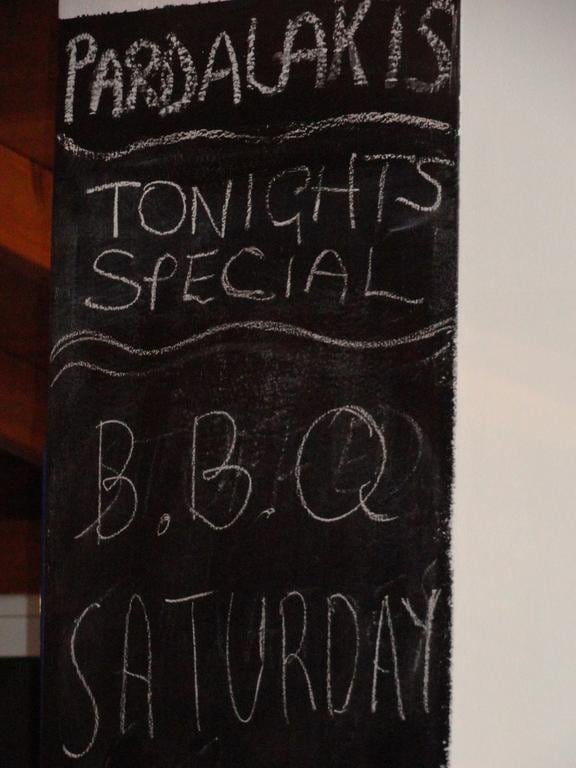 PARDALAKIS
TONIGHTS
SPECIAL
B.B.Q
SATURDAY